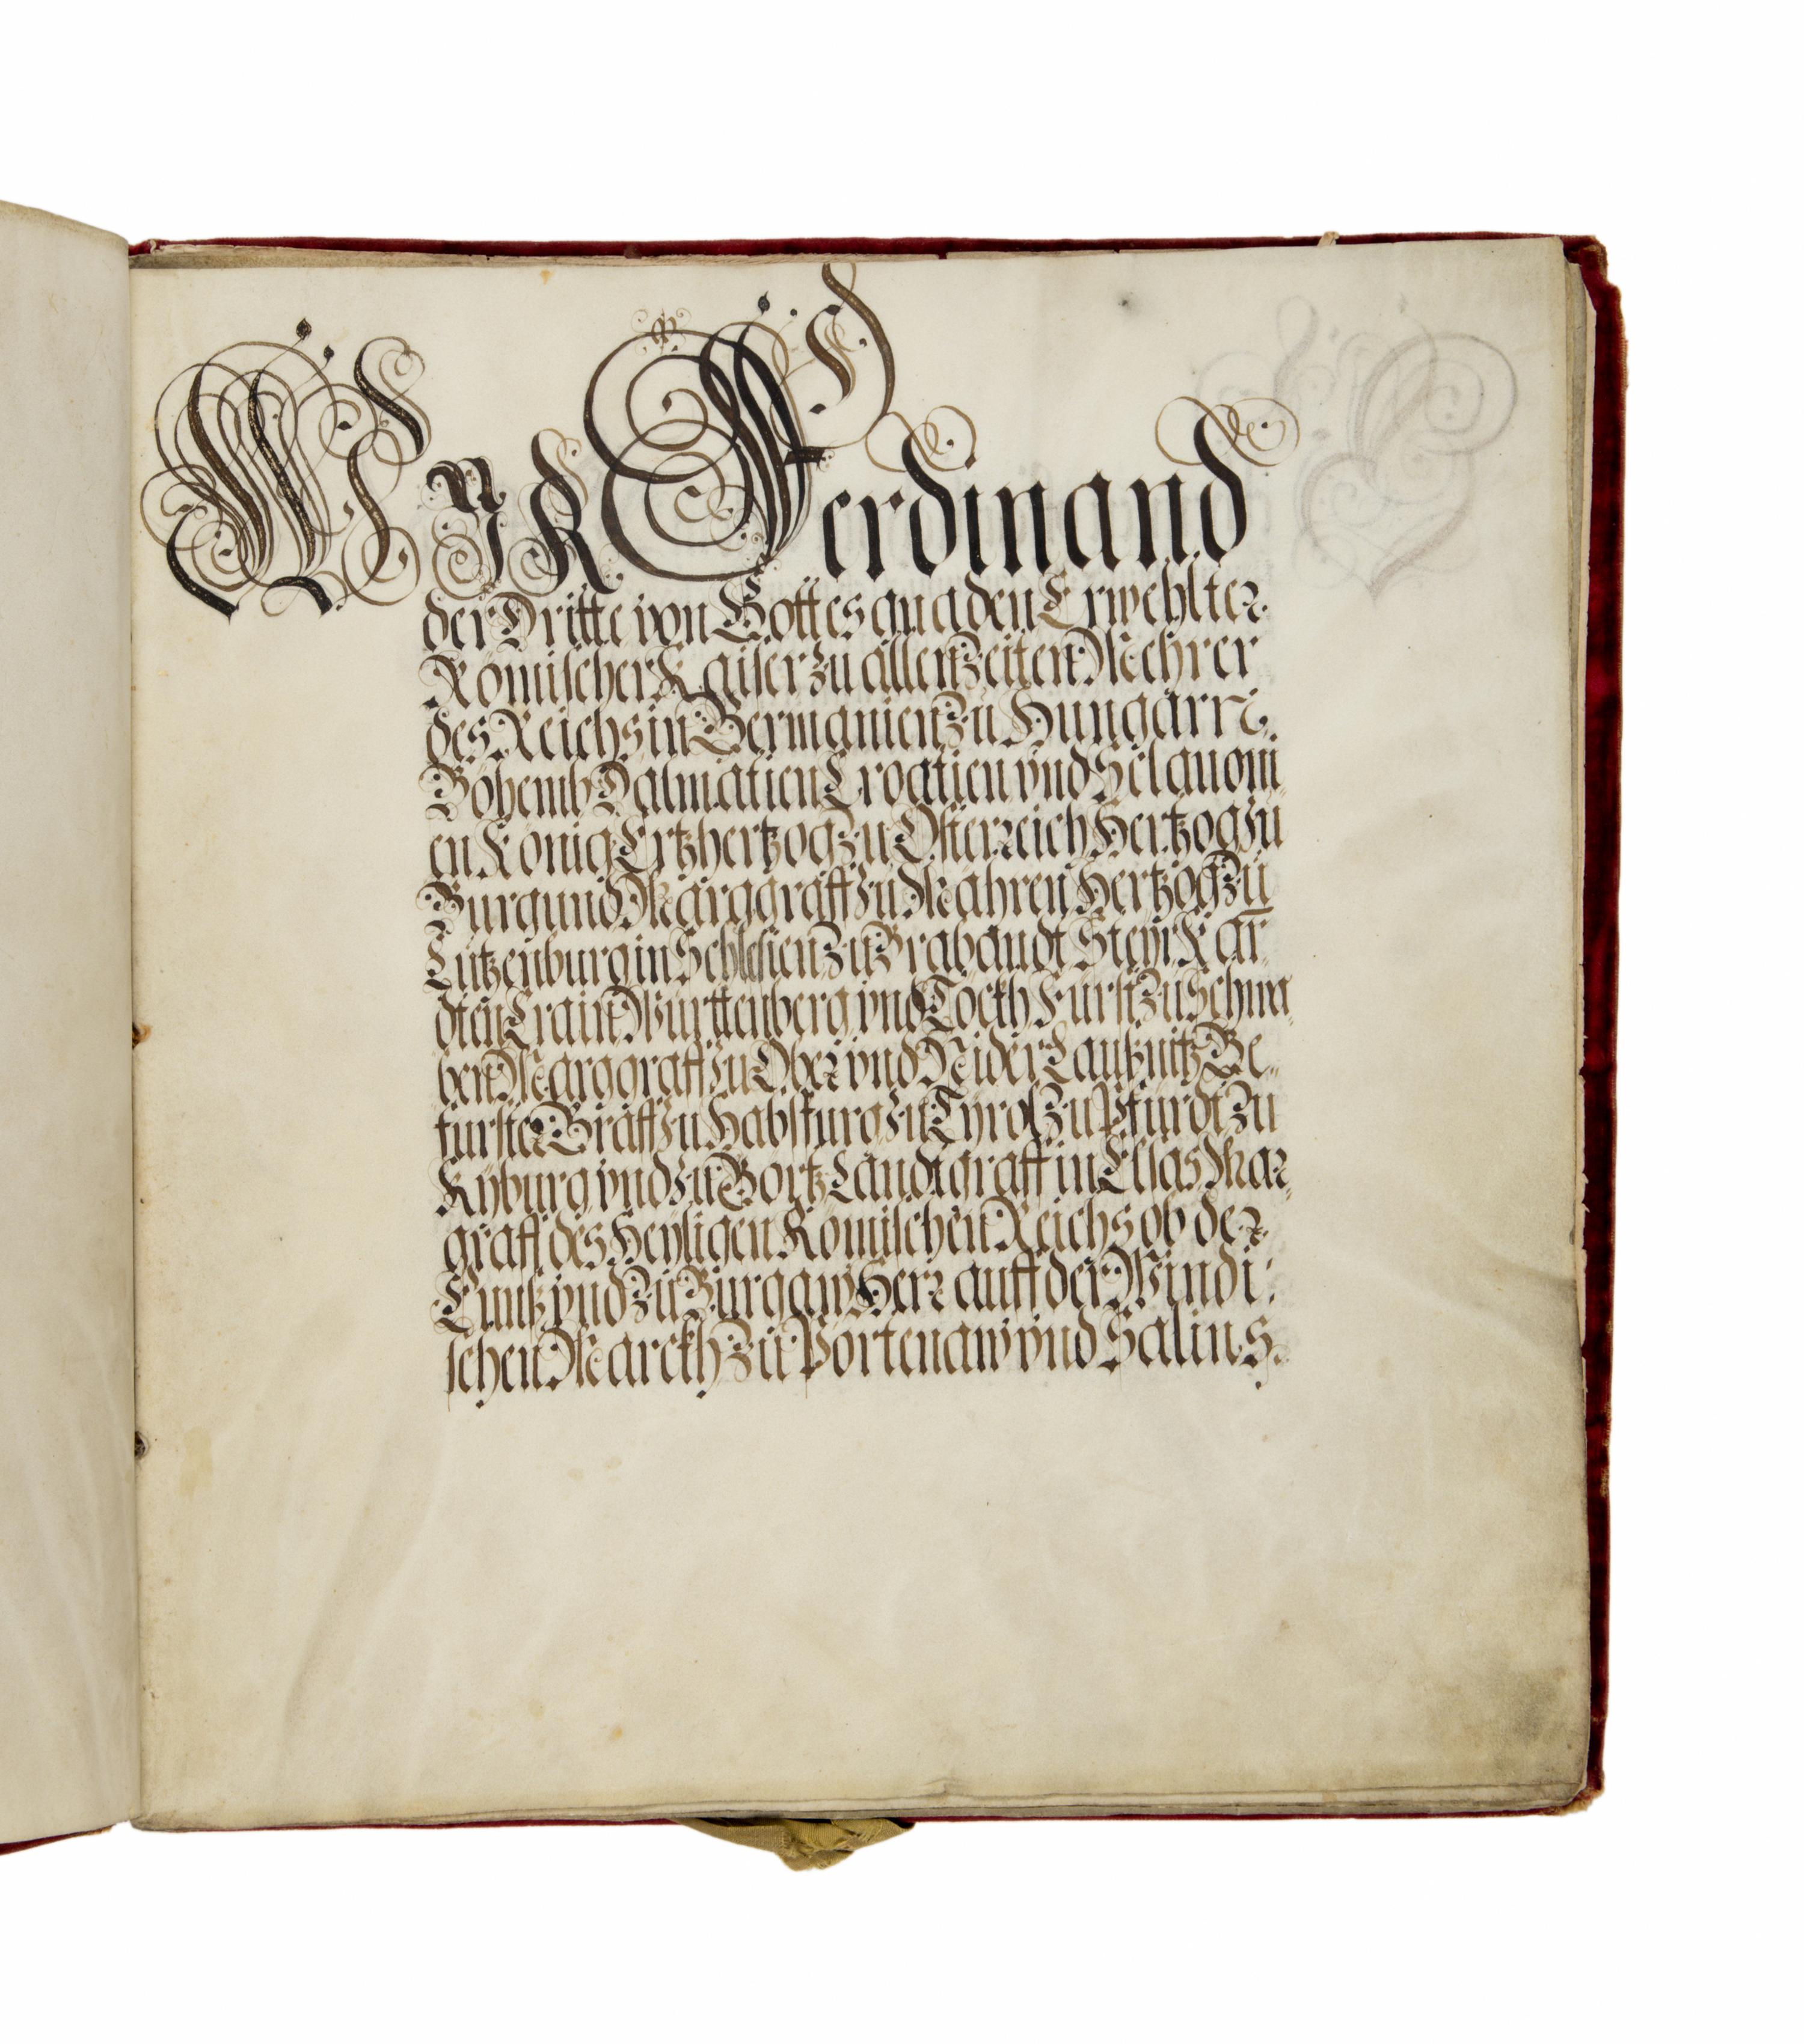 Wyr Ferdinand
der Dritte von Gottes gnaden Erwehlter
Römischer Kaiser zu allen Zeiten Mehrer
des Reichs in Germanien zu Hungarn
Böhemb Dalmatien Croatien vnd Sclauoni
en König Ertzhertzog zu Österreich Hertzog zu
Burgund Marggraff zu Mähren Hertzog zu
Lützenburg in Schlesien zu Brabandt Steyr Kär
dten Crain Württenberg vnd Teckh Fürst zu Schwa
ben Marggraff zu Ober vnd Nider Laußnitz Ge„
fürster Graff zu Habspurg zu Tyrol zu Pfürdt zu
Kyburg vnd zu Görtz Landtgraff in Elsas Mar„
graff des Heyligen Römischen Reichs ob der
Ennß vnd zu Burgaw Herr auff der Windi:
schen Marckh zu Portenaw vnd Salins.